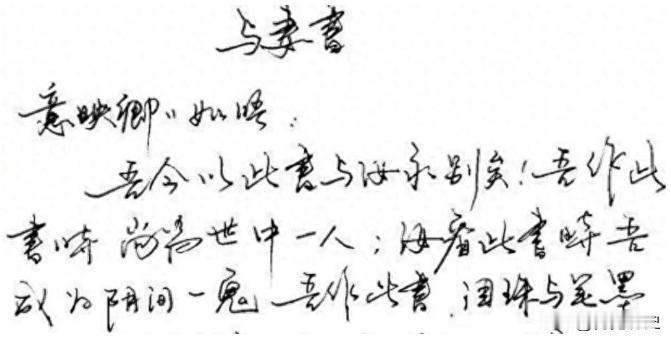 与妻書
意映卿〃如晤：
吾今以此書与汝永别矣！吾作此
書時尚為世中一人；汝看此書時吾
成为阴间一鬼 吾作此書，泪珠与笔墨